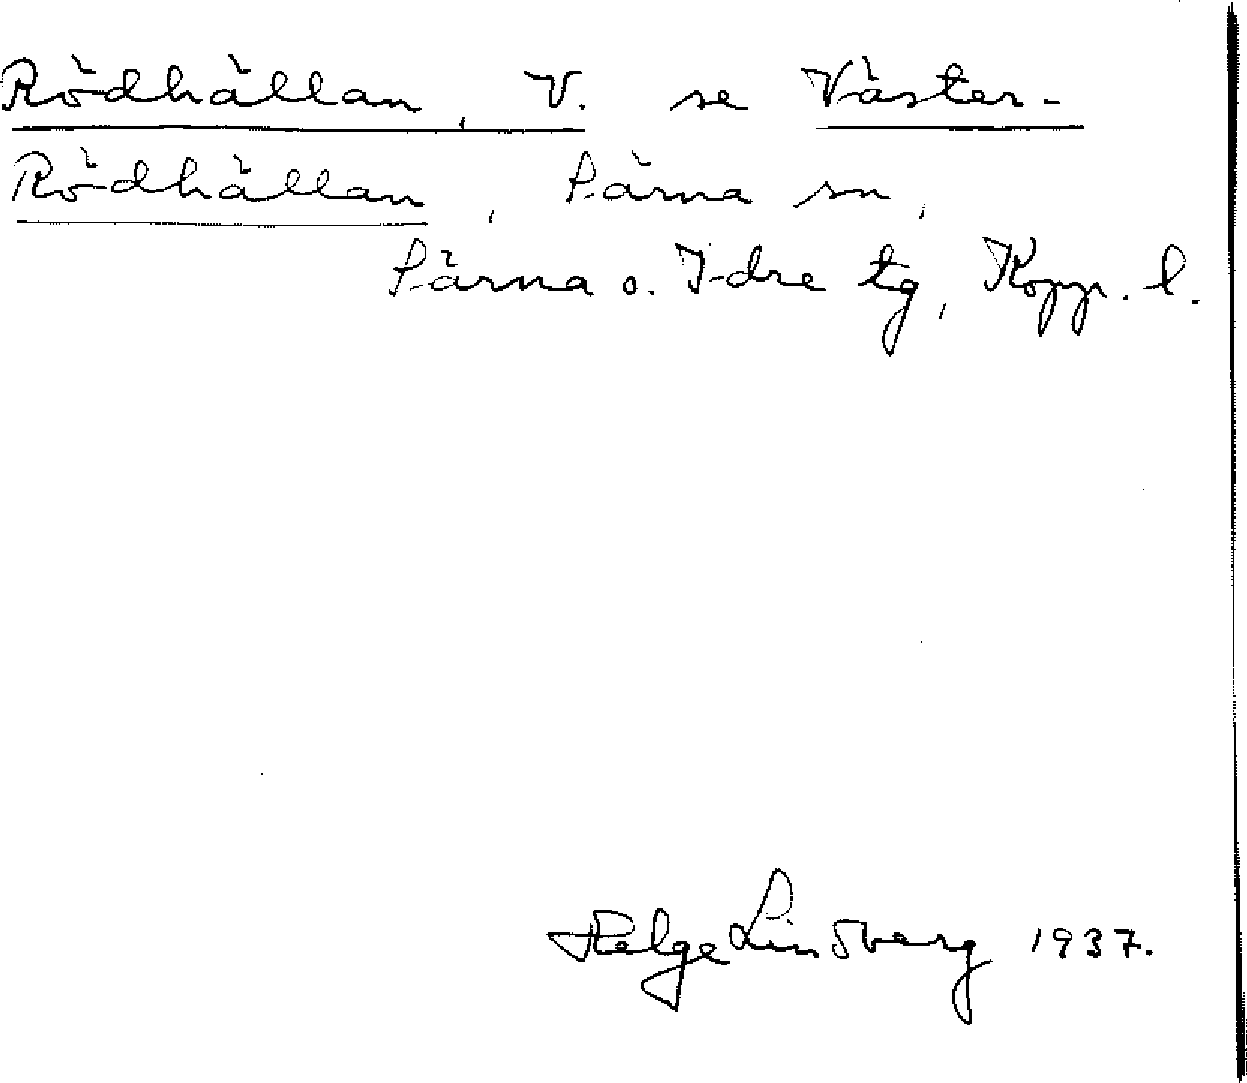 Rödhällan, V. se Väster-
Rödhällan, Särna sn,
Särna o. Idre tg, Kopp. l.
Helge Lindberg 1937.